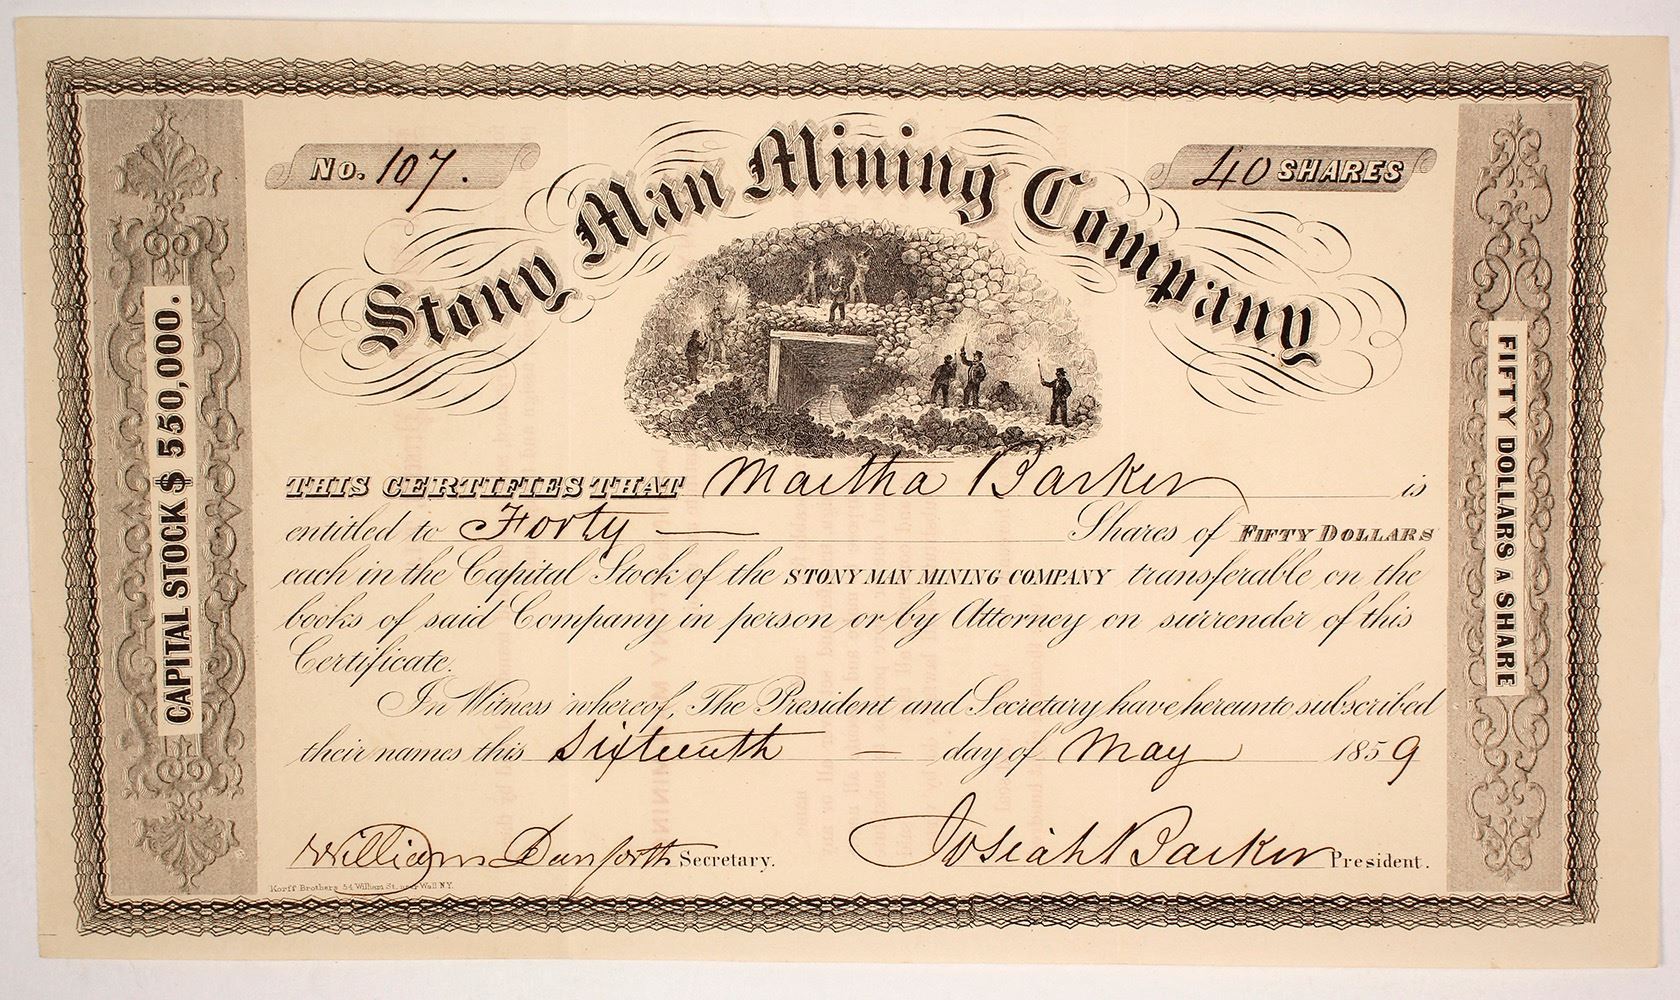 No. 107.
40 SHARES
Stony Man Mining Company
CAPITAL STOCK $ 550,000.
FIFTY DOLLARS A SHARE
THIS CERTIFIES THAT Martha Barker is
entitled to Forty — Shares of FIFTY DOLLARS
each in the Capital Stock of the STONY MAN MINING COMPANY transferable on the
books of said Company in person or by Attorney on surrender of this
Certificate.
In Witness whereof, The President and Secretary have hereunto subscribed
their names this Sixteenth — day of May 1859
William Danforth Secretary.
Josiah Barker President.
Korff Brothers 54 William St. near Wall N.Y.